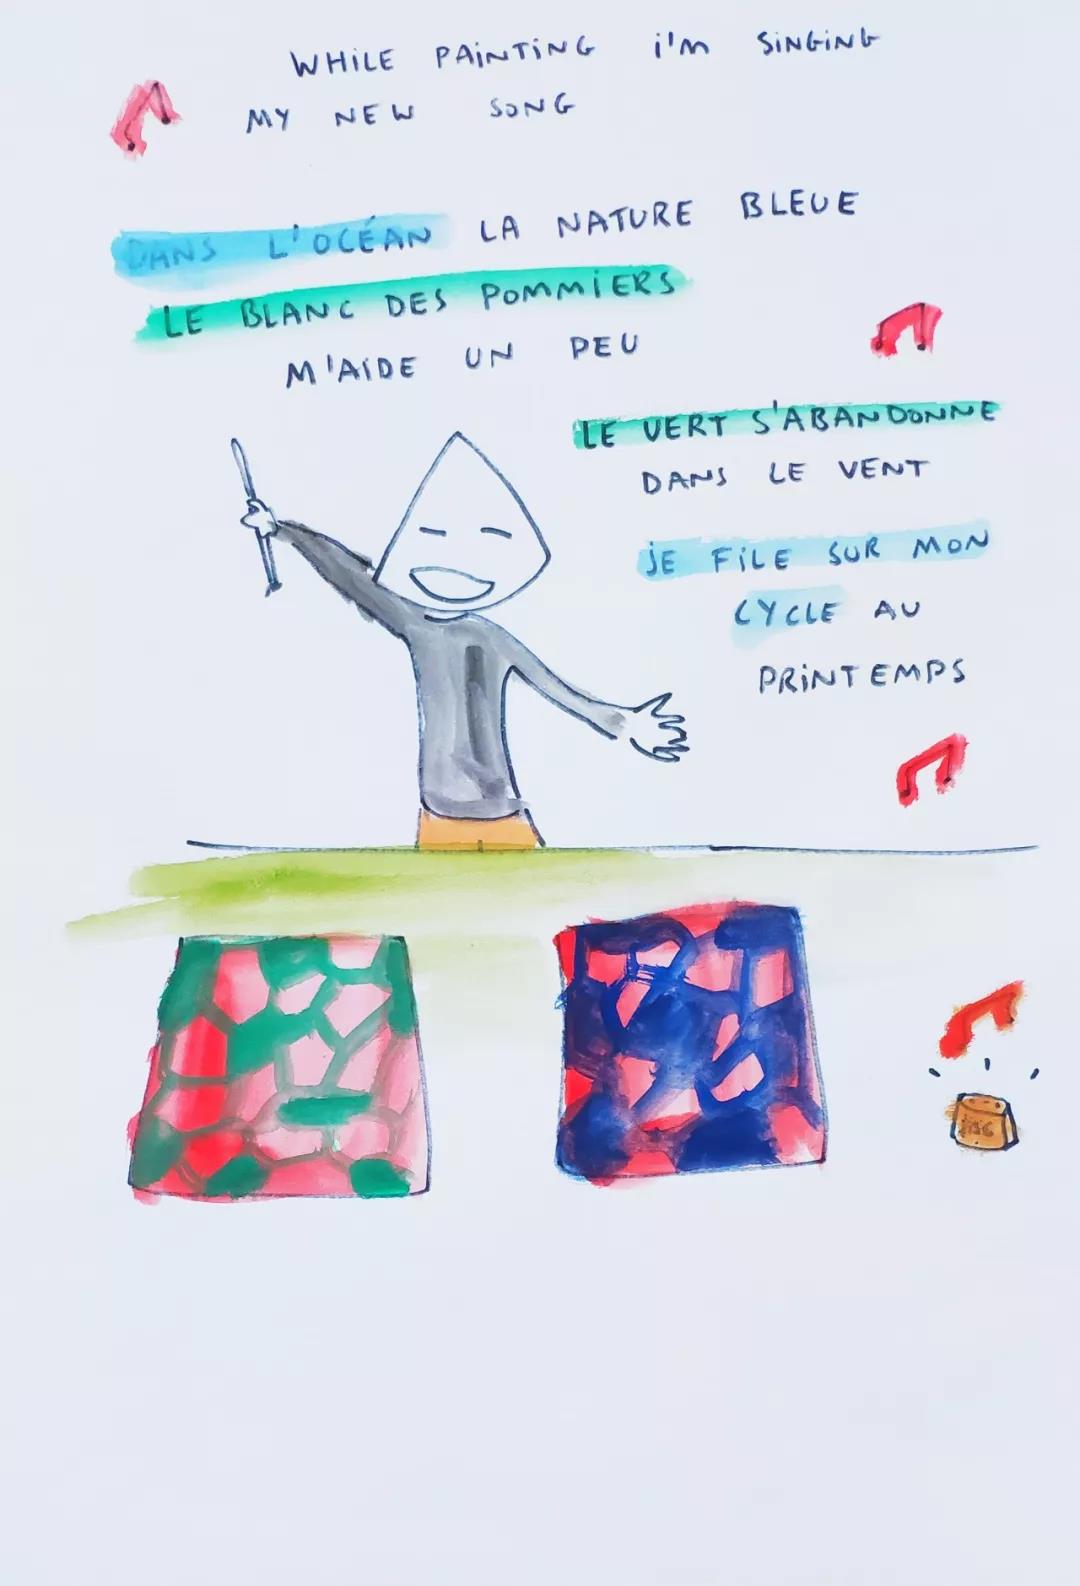 WHILE PAINTING i'm SINGING
MY NEW SONG
DANS L'OCÉAN LA NATURE BLEUE
LE BLANC DES POMMIERS
M'AIDE UN PEU
LE VERT S'ABANDONNE
DANS LE VENT
JE FILE SUR MON
CYCLE AU
PRINTEMPS